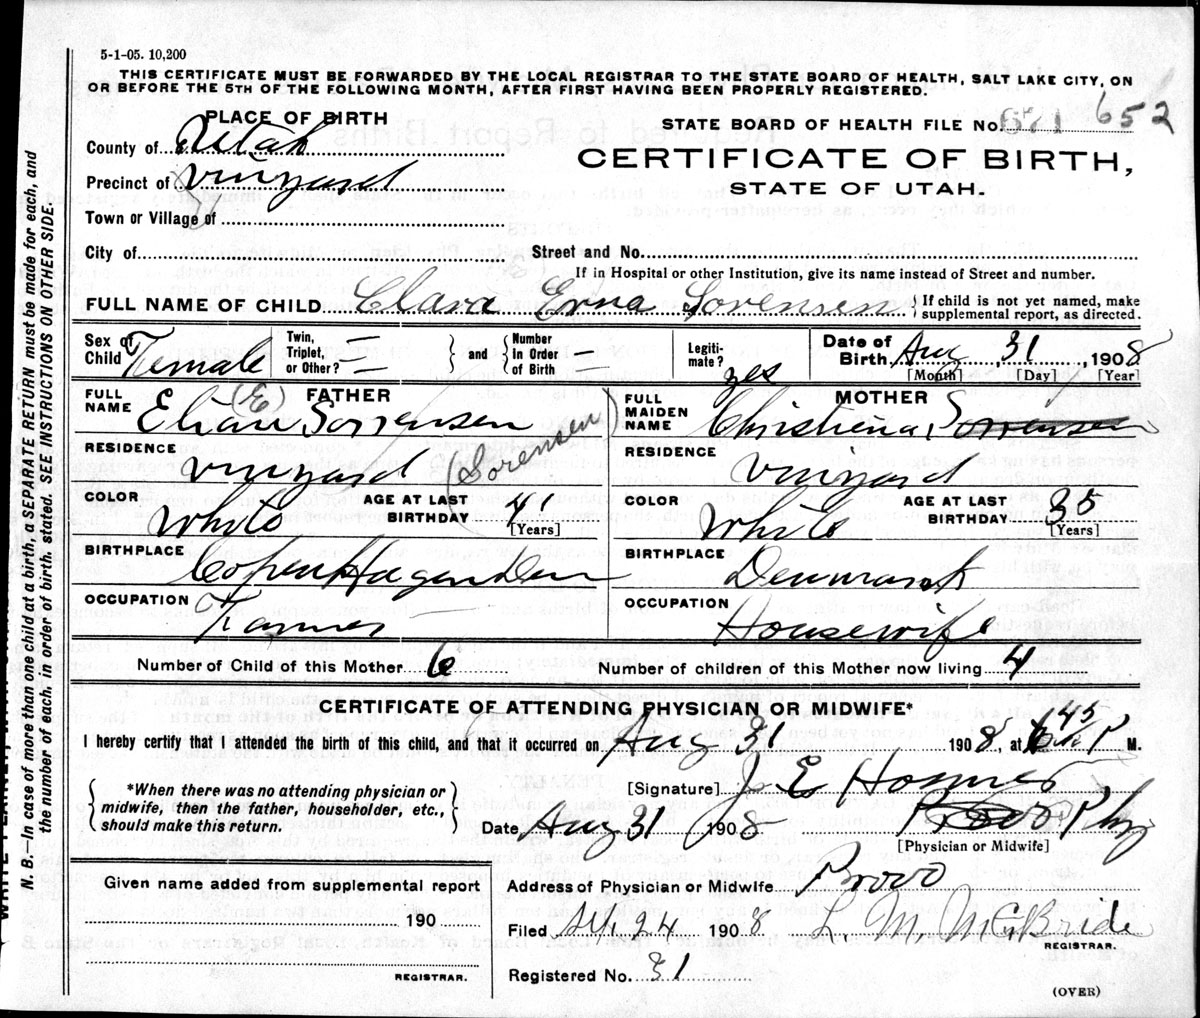 5-1-05. 10,200
THIS CERTIFICATE MUST BE FORWARDED BY THE LOCAL REGISTRAR TO THE STATE BOARD OF HEALTH, SALT LAKE CITY, ON
OR BEFORE THE 5TH OF THE FOLLOWING MONTH, AFTER FIRST HAVING BEEN PROPERLY REGISTERED.
PLACE OF BIRTH
STATE BOARD OF HEALTH FILE No. 652
County of Utah
CERTIFICATE OF BIRTH,
STATE OF UTAH.
Precinct of Vinyard
Town or Village of
City of Street and No.
If in Hospital or other Institution, give its name instead of Street and number.
FULL NAME OF CHILD Clara Erna Sorensen { If child is not yet named, make
supplemental report, as directed.
Sex of Child Female Twin, Triplet, or Other? — } and { Number In Order of Birth — Legiti-mate? yes Date of Birth Aug 31, 1908
[Month] [Day] [Year]
FATHER
FULL NAME (E) Sorrensen (Sorensen)
RESIDENCE Vinyard
COLOR White AGE AT LAST BIRTHDAY 41 [Years]
BIRTHPLACE Copenhagen Den
OCCUPATION Farmer
MOTHER
FULL MAIDEN NAME Christiena Sorrensen
RESIDENCE Vinyard
COLOR White AGE AT LAST BIRTHDAY 35 [Years]
BIRTHPLACE Denmark
OCCUPATION Housewife
Number of Child of this Mother 6 Number of children of this Mother now living 4
CERTIFICATE OF ATTENDING PHYSICIAN OR MIDWIFE*
I hereby certify that I attended the birth of this child, and that it occurred on Aug 31 1908, at 645 P M.
{ *When there was no attending physician or
midwife, then the father, householder, etc.,
should make this return. }
[Signature] J E
Date Aug 31 1908 Phy
[Physician or Midwife]
Given name added from supplemental report
190
REGISTRAR.
Address of Physician or Midwife Provo
Filed 24 1908 L. M. McBride
REGISTRAR.
Registered No. 31
(OVER)
N. B.—In case of more than one child at a birth, a SEPARATE RETURN must be made for each, and
the number of each, in order of birth, stated. SEE INSTRUCTIONS ON OTHER SIDE.